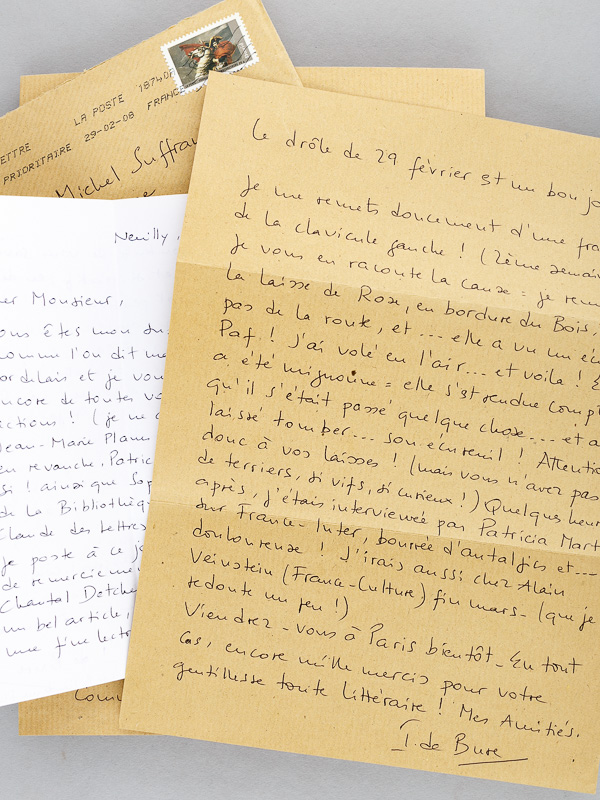 LETTRE
PRIORITAIRE
LA POSTE 18740A
29-02-08 FRANCE
Michel Suffran
Neuilly,
er Monsieur,
ous êtes mon
comme l'on dit
ordelais et je vou
encore de toutes vo
ctions ! (je ne
Jean-Marie Plan
en revanche, Patric
si ! ainsi que Sop
de la Bibliothèq
Claude des Lettres
je poste à ce jo
de remerciemen
Chantal Detche
un bel article,
une fine lectr
Comm
Le drôle de 29 février est un bon jo
Je me remets doucement d'une fra
de la clavicule gauche ! (2ème semai
Je vous en raconte la cause : je
la laisse de Rose, en bordure du Bois,
pas de la route, et ... elle a vu un éc
Paf ! J'ai volé en l'air ... et voila !
a été mignonne : elle s'est rendue compt
qu'il s'était passé quelque chose ... et a
laissé tomber ... son écureuil ! Attentio
donc à vos laisses ! (mais vous n'avez pas
de terriers, si vifs, si curieux !) Quelques heur
après, j'étais interviewée par Patricia Mart
sur France-Inter, bourrée d'antalgies et ...
douloureuse ! J'irais aussi chez Alain
Veinstein (France-Culture) fin mars - (que je
redoute un peu !)
Viendrez-vous à Paris bientôt - En tout
cas, encore mille mercis pour votre
gentillesse toute littéraire ! Mes Amitiés.
I. de Bure